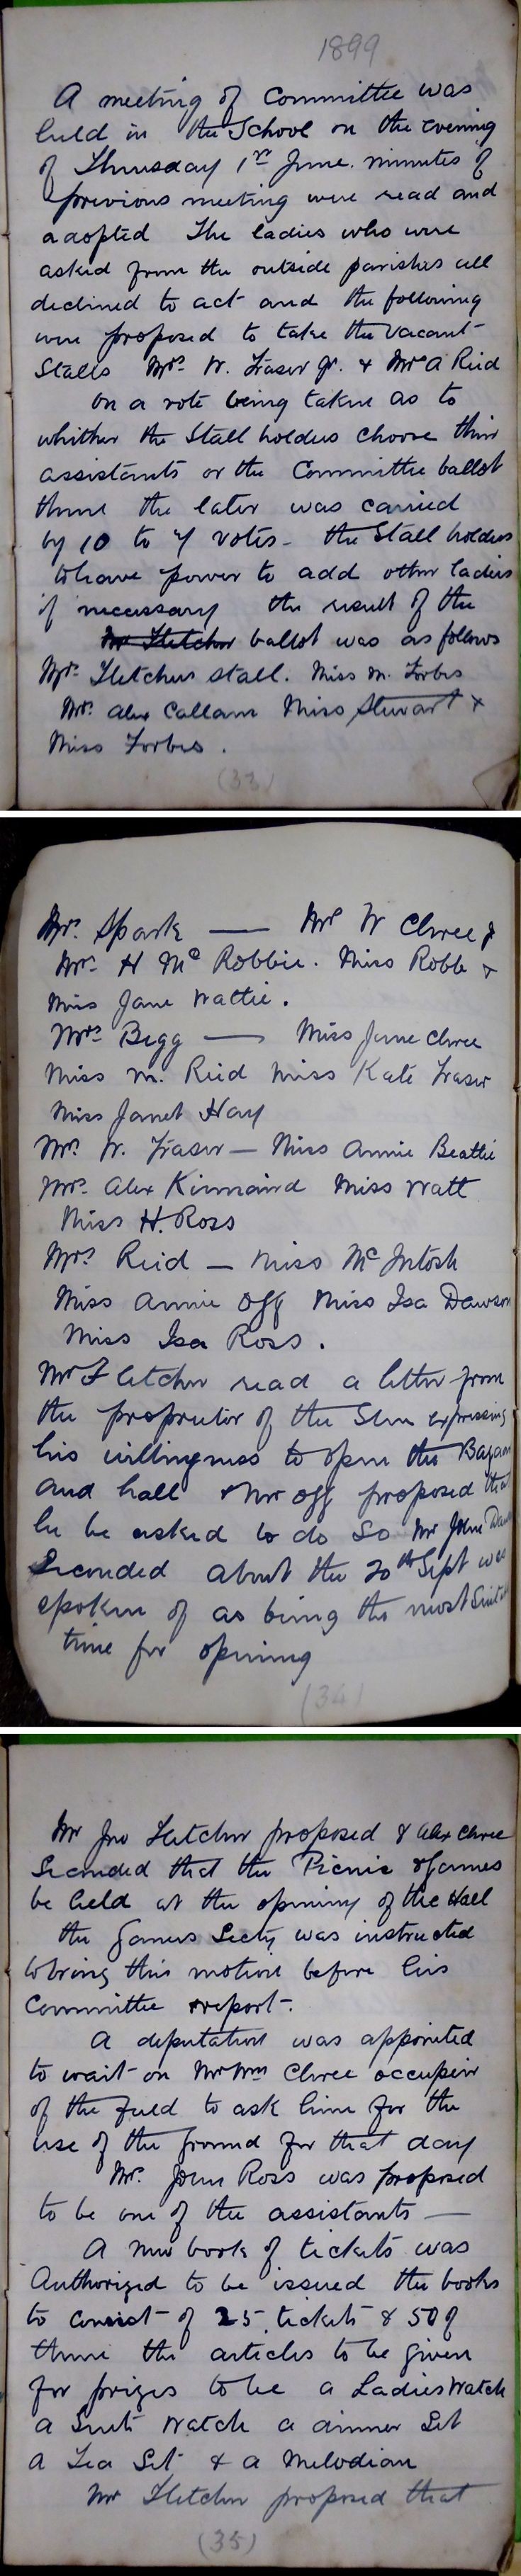 1899
A meeting of Committee was
held in the School on the evening
of Thursday 1st June. minutes of
previous meeting were read and
adopted The ladies who were
asked from the outside parishes all
declined to act and the following
were proposed to take the vacant
Stalls Mrs. W. Fraser Jr. & Mrs A Reid
On a vote being taken as to
whither the Stall holders choose thier
assistants or the Committee ballot
them the later was carried
by 10 to 7 votes - the Stall holders
to have power to add other ladies
if necessary the result of the
Mr Fletcher ballot was as follows
Mrs. Fletchers stall. Miss M. Forbes
Mrs. Alex Callam Miss Stewart &
Miss Forbes.
(33)
Mrs. Spark — Mrs W Chree Jr
Mrs. H McRobbie. Miss Robb &
Miss Jane Wattie.
Mrs Begg — Miss Jane Chree
Miss M. Reid Miss Kate Fraser
Miss Janet Hay
Mrs. W. Fraser — Miss Annie Beattie
Mrs. Alex Kinnaird Miss Watt
Miss H. Ross
Mrs Reid — Miss McIntosh
Miss Annie Ogg Miss Isa Dawson
Miss Isa Ross.
Mr Fletcher read a letter from
the proprietor of the expressing
his willingness to open the Bazaar
and hall & Mr Ogg proposed that
he be asked to do so Mr John
Seconded about the 20th Sept was
spoken of as being the most
time for opening
(34)
Mr Jno Fletcher proposed & Alex Chree
Seconded that the Picnic & Games
be held at the opening of the Hall
the Games Secty was instructed
to bring this motion before his
Committee & report.
A deputation was appointed
to wait on Mr Wm Chree occupier
of the field to ask him for the
use of the ground for that day
Mr. John Ross was proposed
to be one of the assistants —
A new book of tickets was
Authorized to be issued the books
to consist of 25 tickets & 50 of
them the articles to be given
for prizes to be a Ladies Watch
a Gents Watch a dinner Set
a Tea Set & a Melodian
Mr Fletcher proposed that
(35)